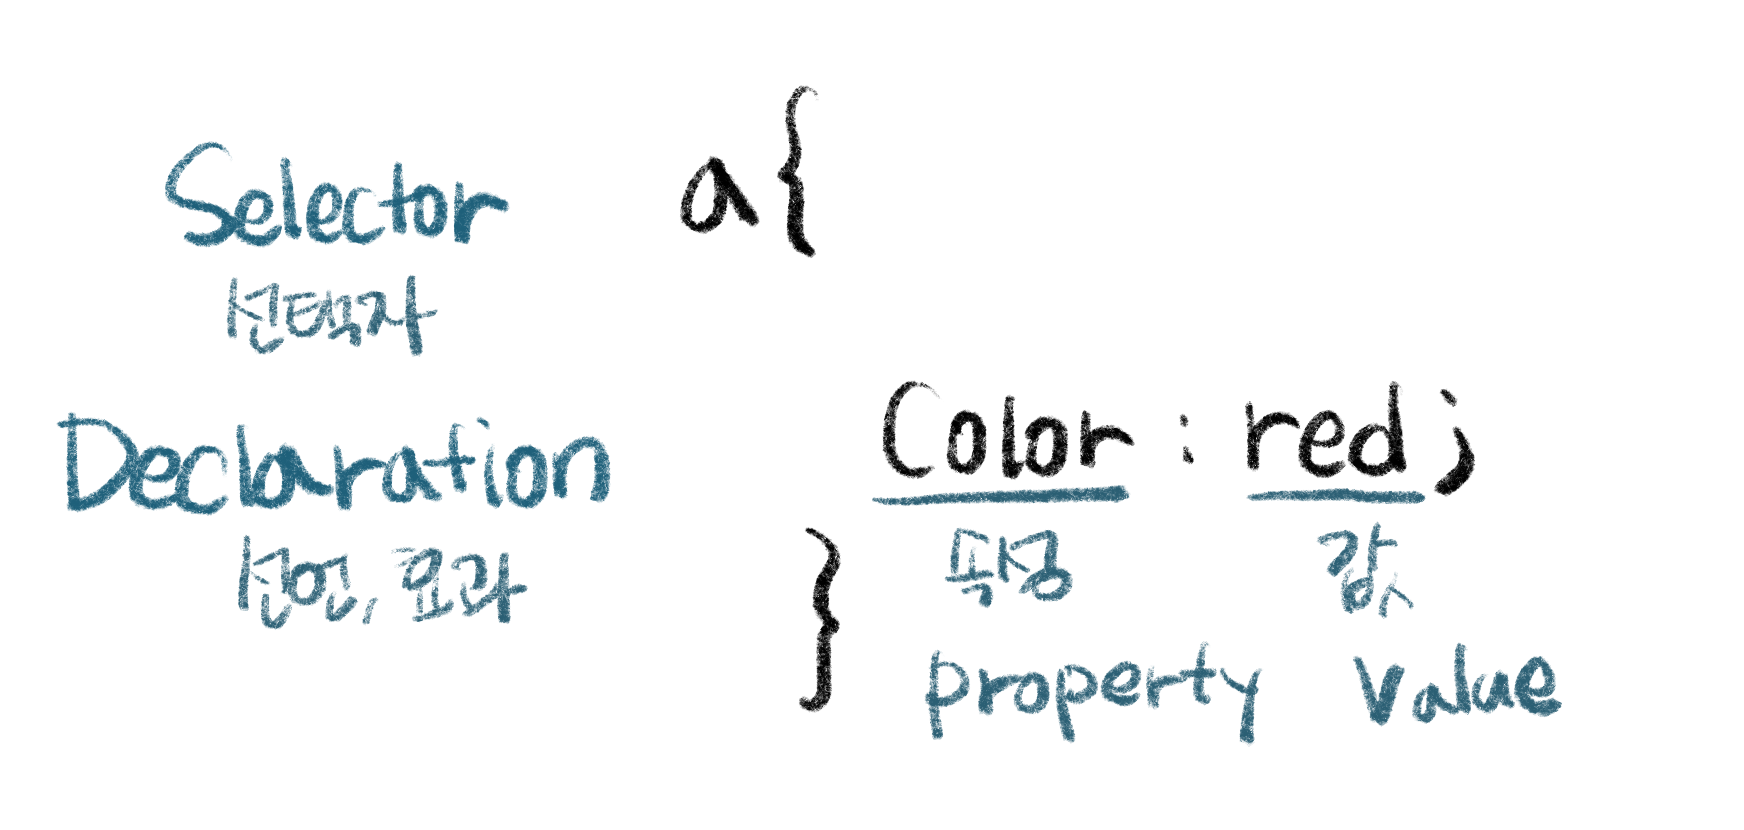 Selector a{
선택자
Declaration Color : red;
선언, 효과 } 속성 값
property value